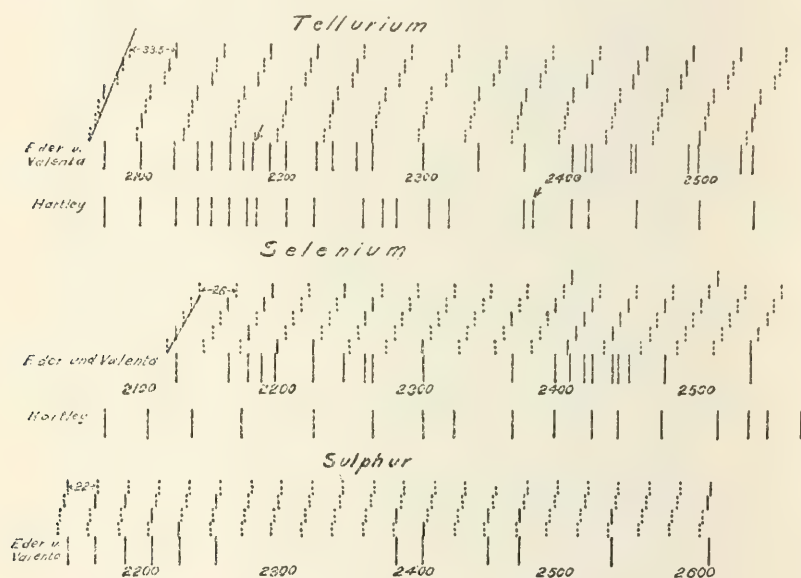 Tellurium
33.5
Eder u.
Valenta
2100 2200 2300 2400 2500
Hartley
Selenium
26
Eder und Valenta
2100 2200 2300 2400 2500
Hartley
Sulphur
22
Eder u.
Valenta
2200 2300 2400 2500 2600